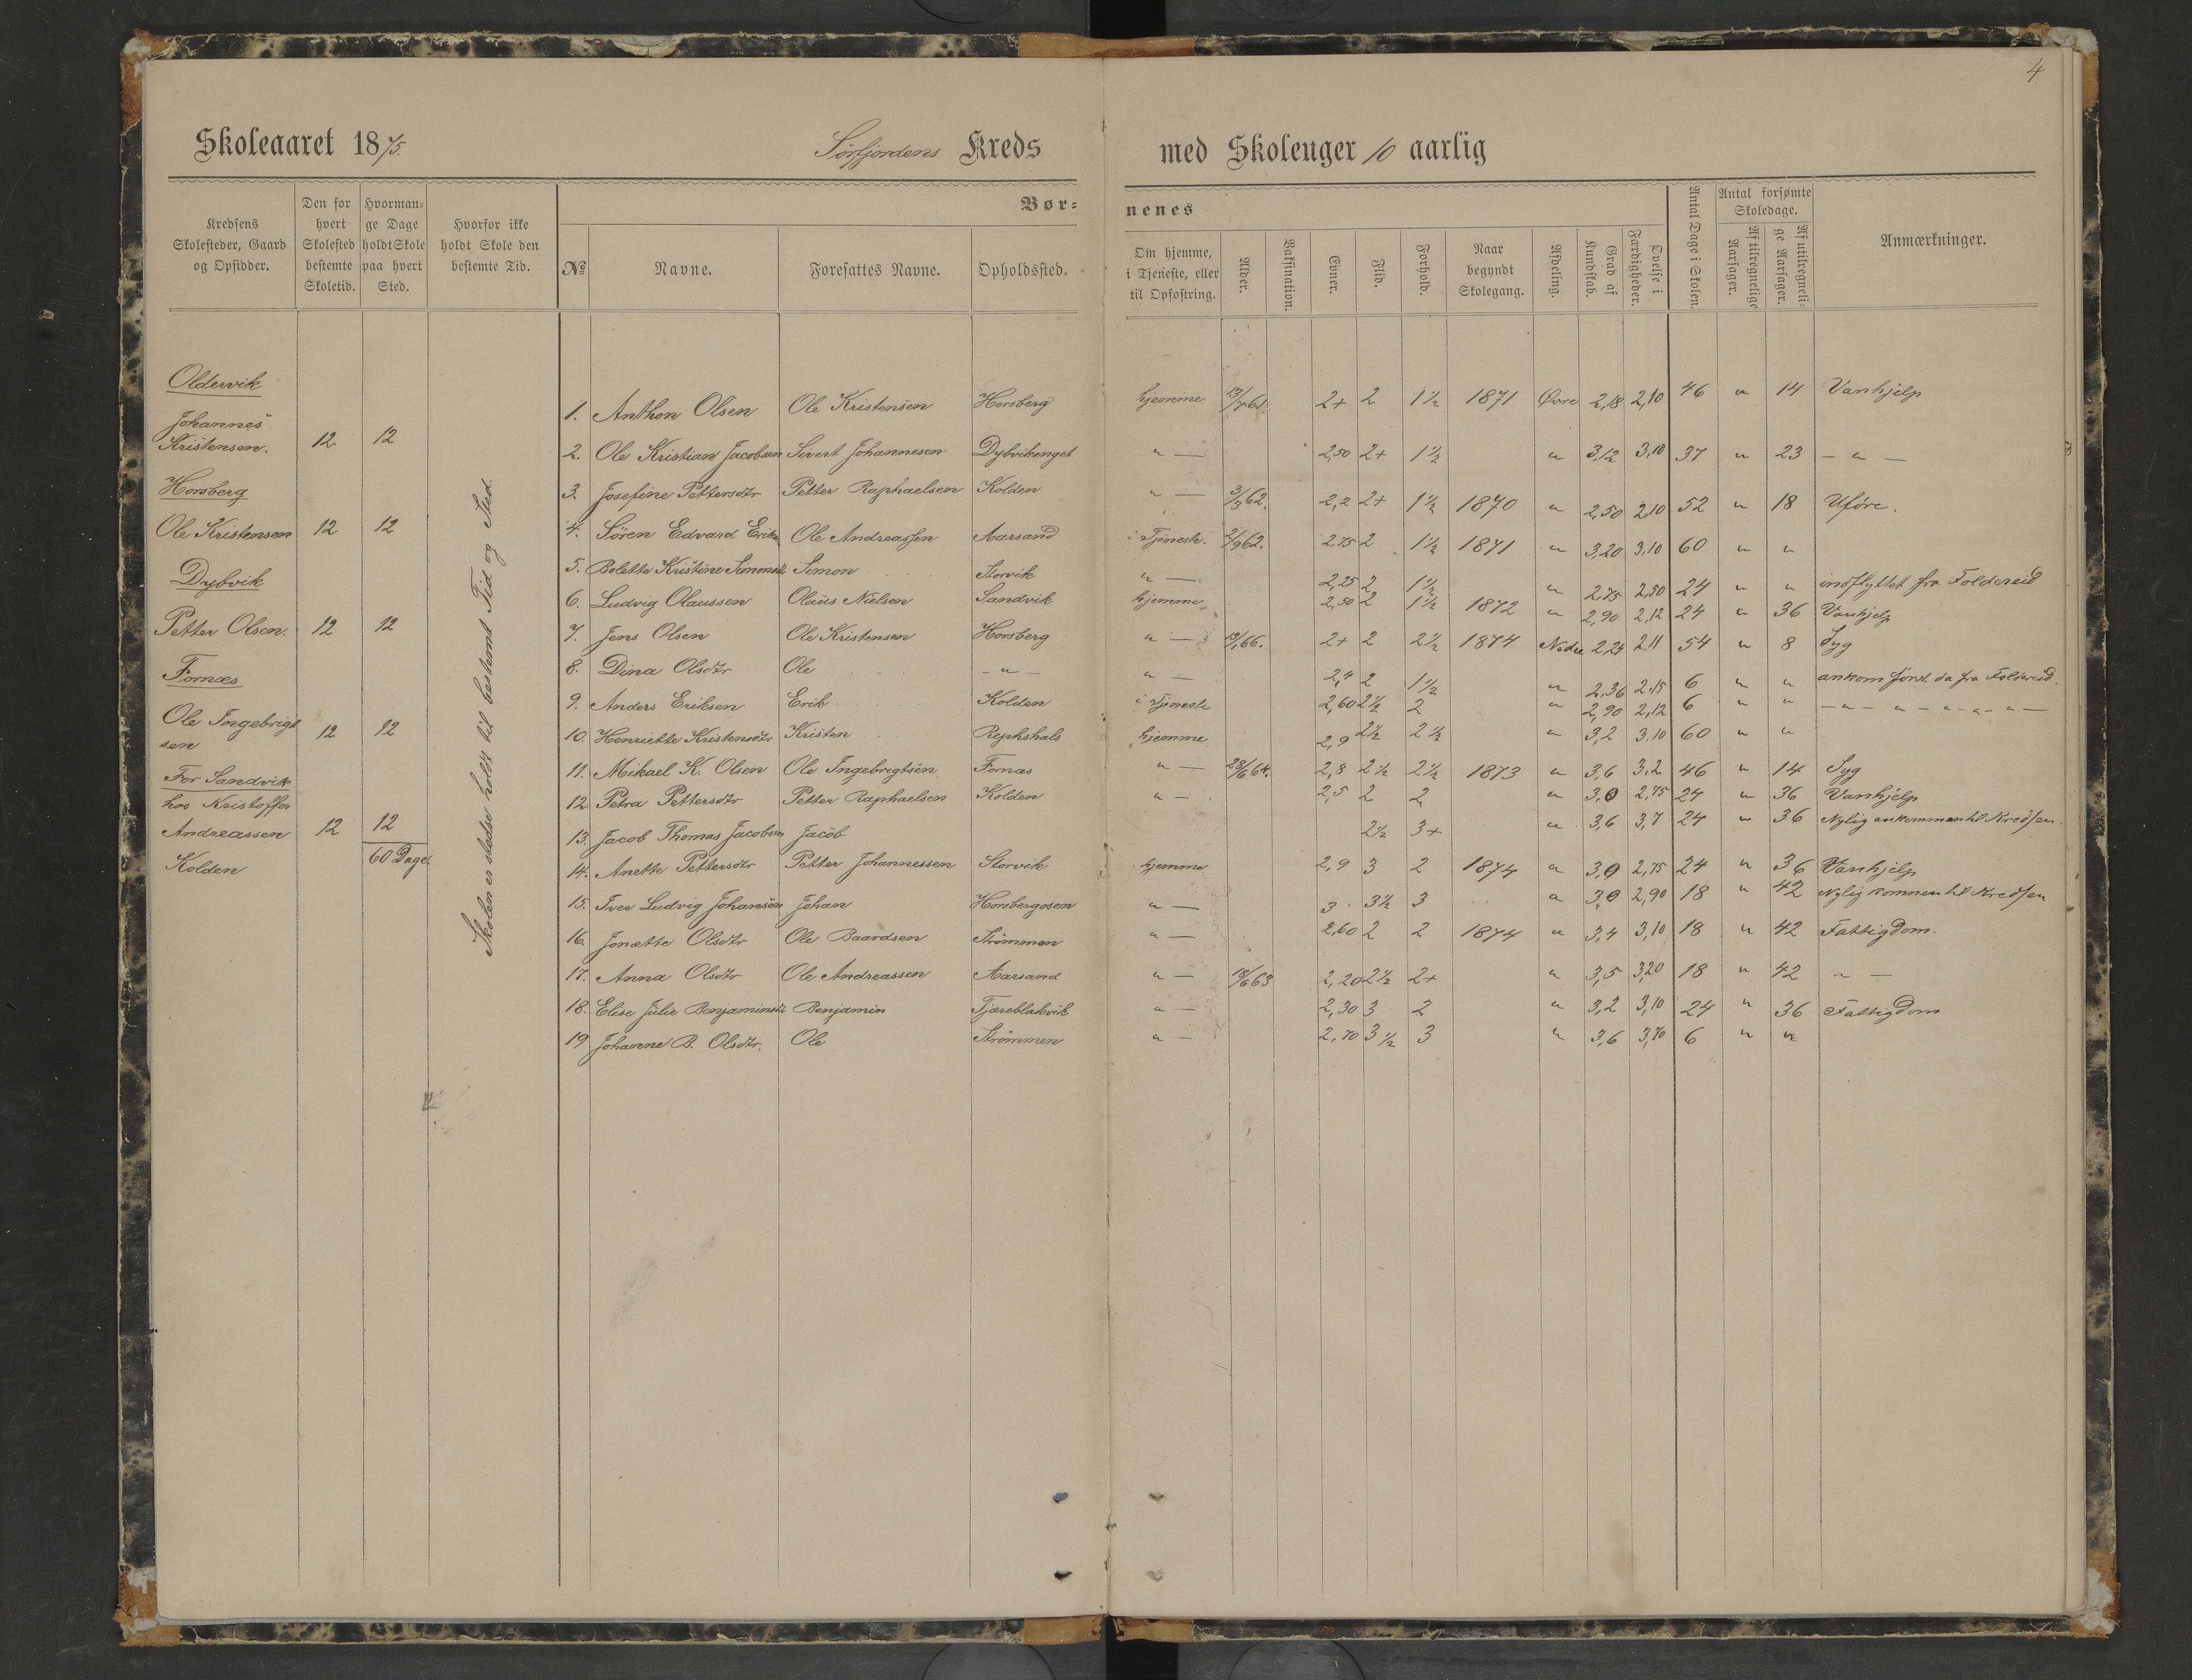 4
Skoleaaret 1875. Sörfjordens Kreds med Skoleuger 10 aarlig
Børnenes
Kredsens Skolesteder, Gaard og Opsidder.
Den for hvert Skolested bestemte Skoletid.
Hvormange Dage holdt Skole paa hvert Sted.
Hvorfor ikke holdt Skole den bestemte Tid.
№
Navne.
Foresattes Navne.
Opholdssted.
Om hjemme, i Tjeneste, eller til Opfostring.
Alder.
Vaksination.
Evner.
Flid.
Forhold.
Naar begyndt Skolegang.
Afdeling.
Grad af Kundskab.
Øvelse i Færdigheder.
Antal Dage i Skolen.
Antal forsømte Skoledage.
Af tilregnelige Aarsager.
Af utilregnelige Aarsager.
Anmærkninger.
Oldervik
Johannes
Kristensen. 12 12
Horsberg
Ole Kristensen 12 12
Dybvik
Petter Olsen. 12 12
Fornæs
Ole Ingebrigt
sen 12 12
For Sandvik
hos Kristoffer
Andreassen 12 12
Kolden 60 Dage.
Skolen er stedse holdt til bestemt Tid og Sted.
1. Anthon Olsen Ole Kristensen Horsberg hjemme 13/7 61. 2+ 2 1½ 1871 Øvre 2,18 2,10 46 " 14 Vanhjelp
2. Ole Kristian Jacobsen Sivert Johannesen Dybvikenget " — 2,50 2+ 1½ " 3,12 3,10 37 " 23 — " —
3. Josefine Pettersdtr Petter Raphaelsen Kolden " — 3/3 62. 2,2 2+ 1½ 1870 " 2,50 2,10 52 " 18 Uföre.
4. Sören Edvard Eriks Ole Andreassen Aarsand i Tjeneste. 2/9 62. 2,75 2 1½ 1871 " 3,20 3,10 60 " "
5. Bolette Kristine Simonsdtr Simon Storvik " — 2,25 2 1½ " 2,75 2,50 24 " " indflyttet fra Foldereid
6. Ludvig Olaussen Olaus Nielsen Sandvik hjemme 2,50 2 1½ 1872 " 2,90 2,12 24 " 36 Vanhjelp
7. Jens Olsen Ole Kristensen Horsberg " — 2+ 2 2½ 1874 Nedre 2,24 2,11 54 " 8 Syg
8. Dina Olsdtr Ole — " — " — 2,4 2 1½ " 2,36 2,15 6 " " ankom först da fra Foldereid.
9. Anders Eriksen Erik Kolden i Tjeneste 2,60 2½ 2 " 2,90 2,12 6 " " — " — " — " — " — " —
10. Henriette Kristensdtr Kristen Rephshals hjemme 2,9 2½ 2½ " 3,2 3,10 60 " "
11. Mikael K. Olsen Ole Ingebrigtsen Fornæs " — 28/6 64. 2,8 2½ 2½ 1873 " 3,6 3,2 46 " 14 Syg
12. Petra Pettersdtr Petter Raphaelsen Kolden " — 2,5 2 2 " 3,0 2,75 24 " 36 Vanhjelp
13. Jacob Thomas Jacobsen Jacob 2½ 3+ " 3,6 3,7 24 " 36 Nylig ankommen til Kredsen.
14. Anette Pettersdtr Petter Johannessen Storvik hjemme 2,9 3 2 1874 " 3,0 2,75 24 " 36 Vanhjelp
15. Iver Ludvig Johansen Johan Horsbergosen " — 3 3½ 3 " 3,0 2,90 18 " 42 Nylig kommen til Kredsen
16. Jonette Olsdtr Ole Baardsen Strömmen " — 2,60 2 2 1874 " 3,4 3,10 18 " 42 Fattigdom.
17. Anna Olsdtr Ole Andreassen Aarsand " — 18/6 63 2,20 2½ 2+ " 3,5 3,20 18 " 42 " —
18. Elise Julie Benjaminsdtr Benjamin Tjæreblakvik " — 2,30 3 2 " 3,2 3,10 24 " 36 Fattigdom
19 Johanne B. Olsdtr. Ole Strömmen " — 2,70 3½ 3 " 3,6 3,70 6 " "